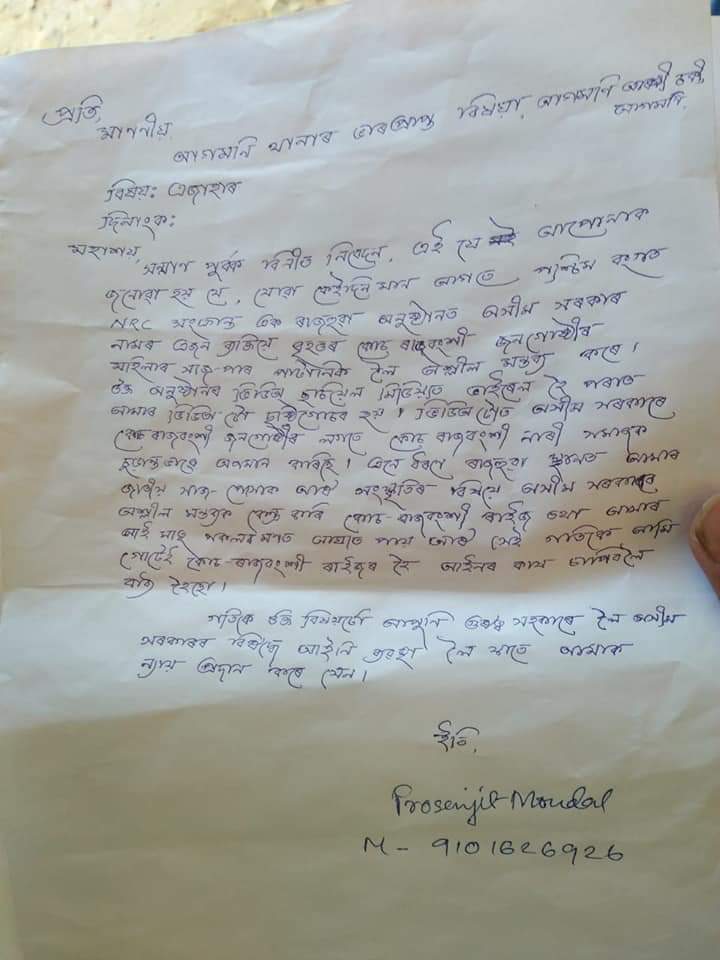 প্ৰতি,
মাননীয়
আগমনি থানাৰ ভাৰপ্ৰাপ্ত বিষয়া, আগমনি আৰক্ষী চকী
আগমনি।
বিষয়: এজাহাৰ
দিনাংক:
মহাশয়,
সন্মান পূৰ্বক বিনীত নিবেদন, এই যে আপোনাক
জনোৱা হয় যে, যোৱা কেইদিনমান আগতে পশ্চিম বংগত
NRC সংক্ৰান্ত এক ৰাজহুৱা অনুষ্ঠানত অসীম সৰকাৰ
নামৰ এজন ব্যক্তিয়ে বৃহত্তৰ কোচ ৰাজবংশী জনগোষ্ঠীৰ
মহিলাৰ সাজ-পাৰ পাটানিক লৈ অশ্লীল মন্তব্য কৰে।
উক্ত অনুষ্ঠানৰ ভিডিঅ' ছচিয়েল মিডিয়াত ভাইৰেল হৈ পৰাত
আমাৰ ভিডিঅ' টো দৃষ্টিগোচৰ হয়। ভিডিঅ' টোত অসীম সৰকাৰে
কোচ ৰাজবংশী জনগোষ্ঠীৰ লগতে কোচ ৰাজবংশী নাৰী সমাজক
চূড়ান্তভাৱে অপমান কৰিছে। এনে ধৰণে ৰাজহুৱা স্থানত আমাৰ
জাতীয় সাজ-পোচাক আৰু সংস্কৃতিৰ বিষয়ে অসীম সৰকাৰে
অশ্লীল মন্তব্যক ব্যক্ত কৰি কোচ-ৰাজবংশী ৰাইজ তথা আমাৰ
আই মাতৃ সকলৰ মনত আঘাত পায় আৰু সেই গতিকে আমি
গোটেই কোচ-ৰাজবংশী ৰাইজৰ হৈ আইনৰ কাষ চাপিবলৈ
বাধ্য হৈছো।
গতিকে উক্ত বিষয়টো আপুনি গুৰুত্ব সহকাৰে লৈ অসীম
সৰকাৰৰ বিৰুদ্ধে আইনি ব্যৱস্থা লৈ যাতে আমাক
ন্যায় প্ৰদান কৰে যেন।
ইতি,
Prosenjit Mondal
M - 9101626926